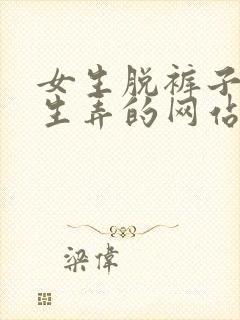 女生脱裤子
生弄的网站
梁偉